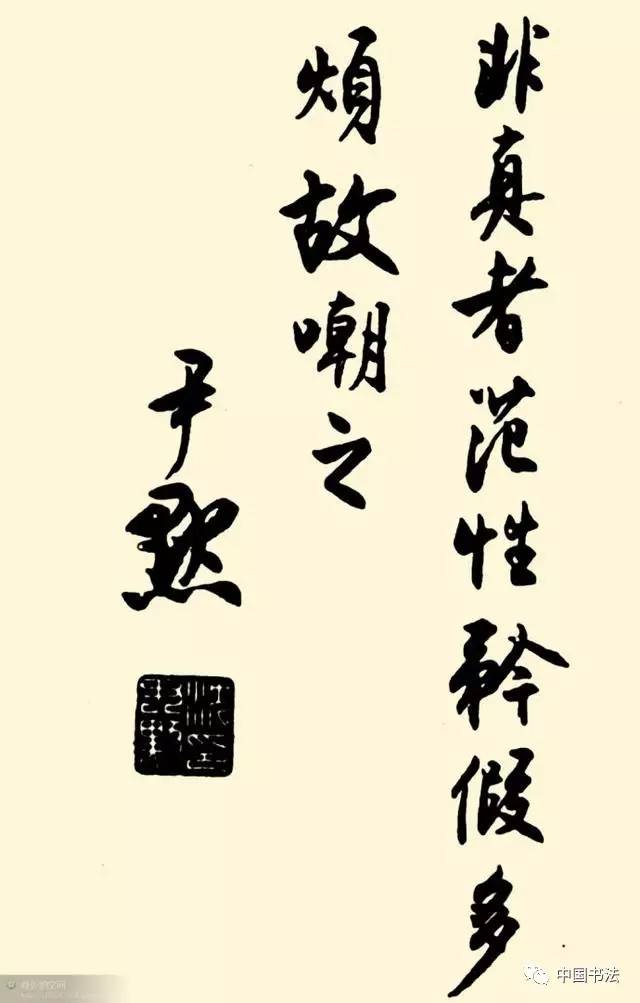 非真者范性矜假多
烦故嘲之
尹默
中国书法